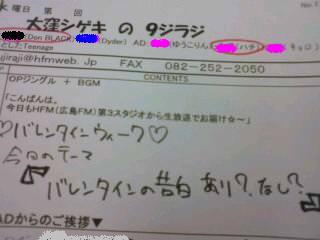 No.1
水曜日 の 第一
大窪シゲキ の 9ジラジ
(Don BLACK) (Dyder) AD: (ゆうこりん) (ハチ) (チョロ)
とした:Teenage
jiraji@hfmweb.jp FAX 082-252-2050
CONTENTS
OPジングル + BGM
「こんばんは。
今日もHFM(広島FM)第3スタジオから生放送でお届け☆~」
♡バレンタインウィーク♡
今日のテーマ
『バレンタインの告白 あり?なし?』
ADからのご挨拶▼